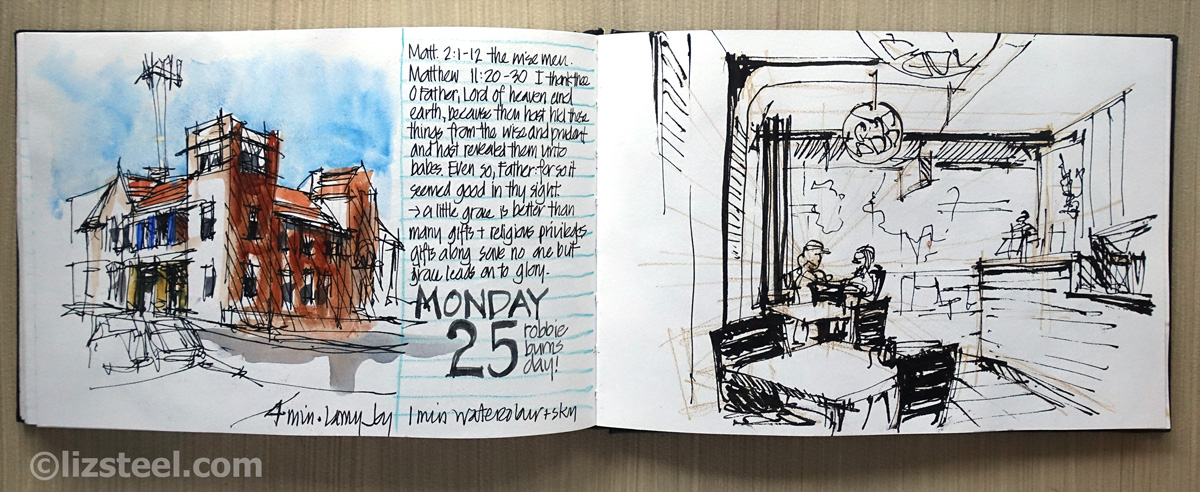 Matt. 2:1-12 the wise men.
Matthew 11:20-30 I thank thee
O Father, Lord of heaven and
earth, because thou hast hid these
things from the wise and prudent
and hast revealed them unto
babes. Even so, Father: for so it
seemed good in thy sight.
→ a little grace is better than
many gifts + religious privileges
gifts along save no one but
grace leads on to glory.
MONDAY
25
robbie
burns
day!
4 min. Lamy Joy
1 min watercolour + sky
©lizsteel.com